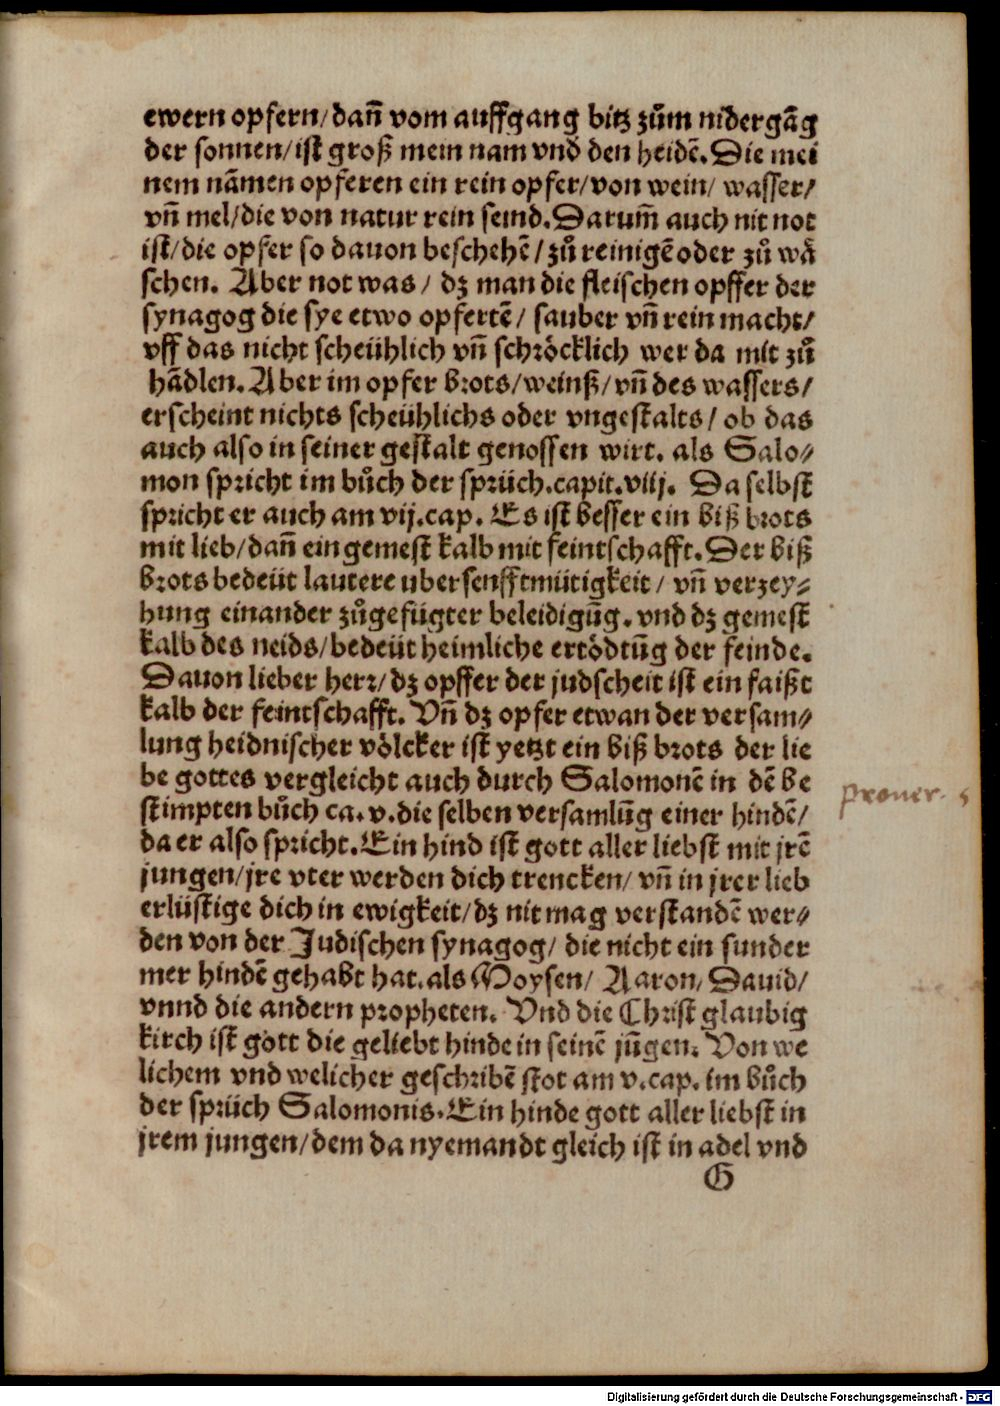 ewern opfern/dañ vom auffgang bitz zům nidergāg
der sonnen/ist groß mein nam vnd den heidē. Die mei
nem nāmen opferen ein rein opfer/von wein/ wasser/
vñ mel/die von natur rein seind. Darum̃ auch nit not
ist/die opfer so dauon beschehē/zů reinigē oder zů wå
schen. Aber not was/ dz man die fleischen opffer der
synagog die sye etwo opfertē/ sauber vñ rein macht/
vff das nicht scheühlich vñ schröcklich wer da mit zů
hādlen. Aber im opfer brots/weinß/vñ des wassers/
erscheint nichts scheühlichs oder vngestalts/ ob das
auch also in seiner gestalt genossen wirt. als Salo⸗
mon spricht im bůch der sprüch.capit.viij. Da selbst
spricht er auch am vij.cap. Es ist besser ein biß brots
mit lieb/dañ ein gemest kalb mit feintschafft. Der biß
brots bedeüt lautere übersenfftmütigkeit/ vñ verzey⸗
hung einander zůgefügter beleidigūg. vnd dz gemest
kalb des neids/bedeüt heimliche ertödtūg der feinde.
Dauon lieber herr/dz opffer der judscheit ist ein faißt
kalb der feintschafft. Vñ dz opfer etwan der versam⸗
lung heidnischer völcker ist yetzt ein biß brots der lie
be gottes vergleicht auch durch Salomonē in dē be
stimpten bůch ca.v.die selben versamlūg einer hindē/
da er also spricht. Ein hind ist gott aller liebst mit jrē
jungen/jre vter werden dich trencken/ vñ in jrer lieb
erlüstige dich in ewigkeit/dz nit mag verstandē wer⸗
den von der Judischen synagog/ die nicht ein sunder
mer hindē gehabt hat.als Moysen/ Aaron/ Dauid/
vnnd die andern propheten. Vnd die Christ glaubig
kirch ist gott die geliebt hinde in seinē jūgen. Von we
lichem vnd welicher geschribē stot am v.cap. im bůch
der sprüch Salomonis. Ein hinde gott aller liebst in
jrem jungen/dem da nyemandt gleich ist in adel vnd
G
prouer. 5
Digitalisierung gefördert durch die Deutsche Forschungsgemeinschaft - DFG